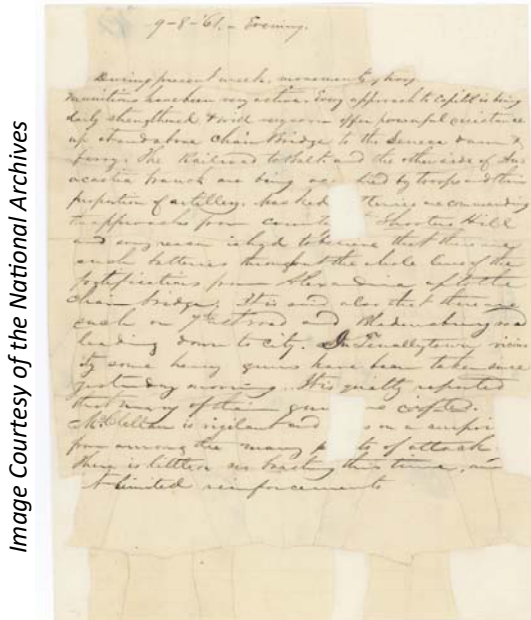 Image Courtesy of the National Archives
9-8-'61. - Evening.
During present week, movements, troop
munitions have been very active. Every approach to Capitol is being
daily strengthened & will very soon offer powerful resistance
up to and above Chain Bridge to the Seneca dam &
ferry. The Railroad to Balt and the other side of
branch are being by troops and
proportion of artillery. Masked batteries are commanding
the approaches from Shooters Hill
and every reason is had to believe that there are
such batteries throughout the whole line of the
fortifications from Alexandria up to the
Chain bridge. It is said also that there are
such on 7th st road and Bladensburg road
leading down to city. In Tenallytown vicin
ity some heavy guns have been taken since
yesterday morning. It is quietly reported
that many of them rifled.
McClellan is vigilant and on a surprise
from among the many of attack
There is little this time, and
limited reinforcements